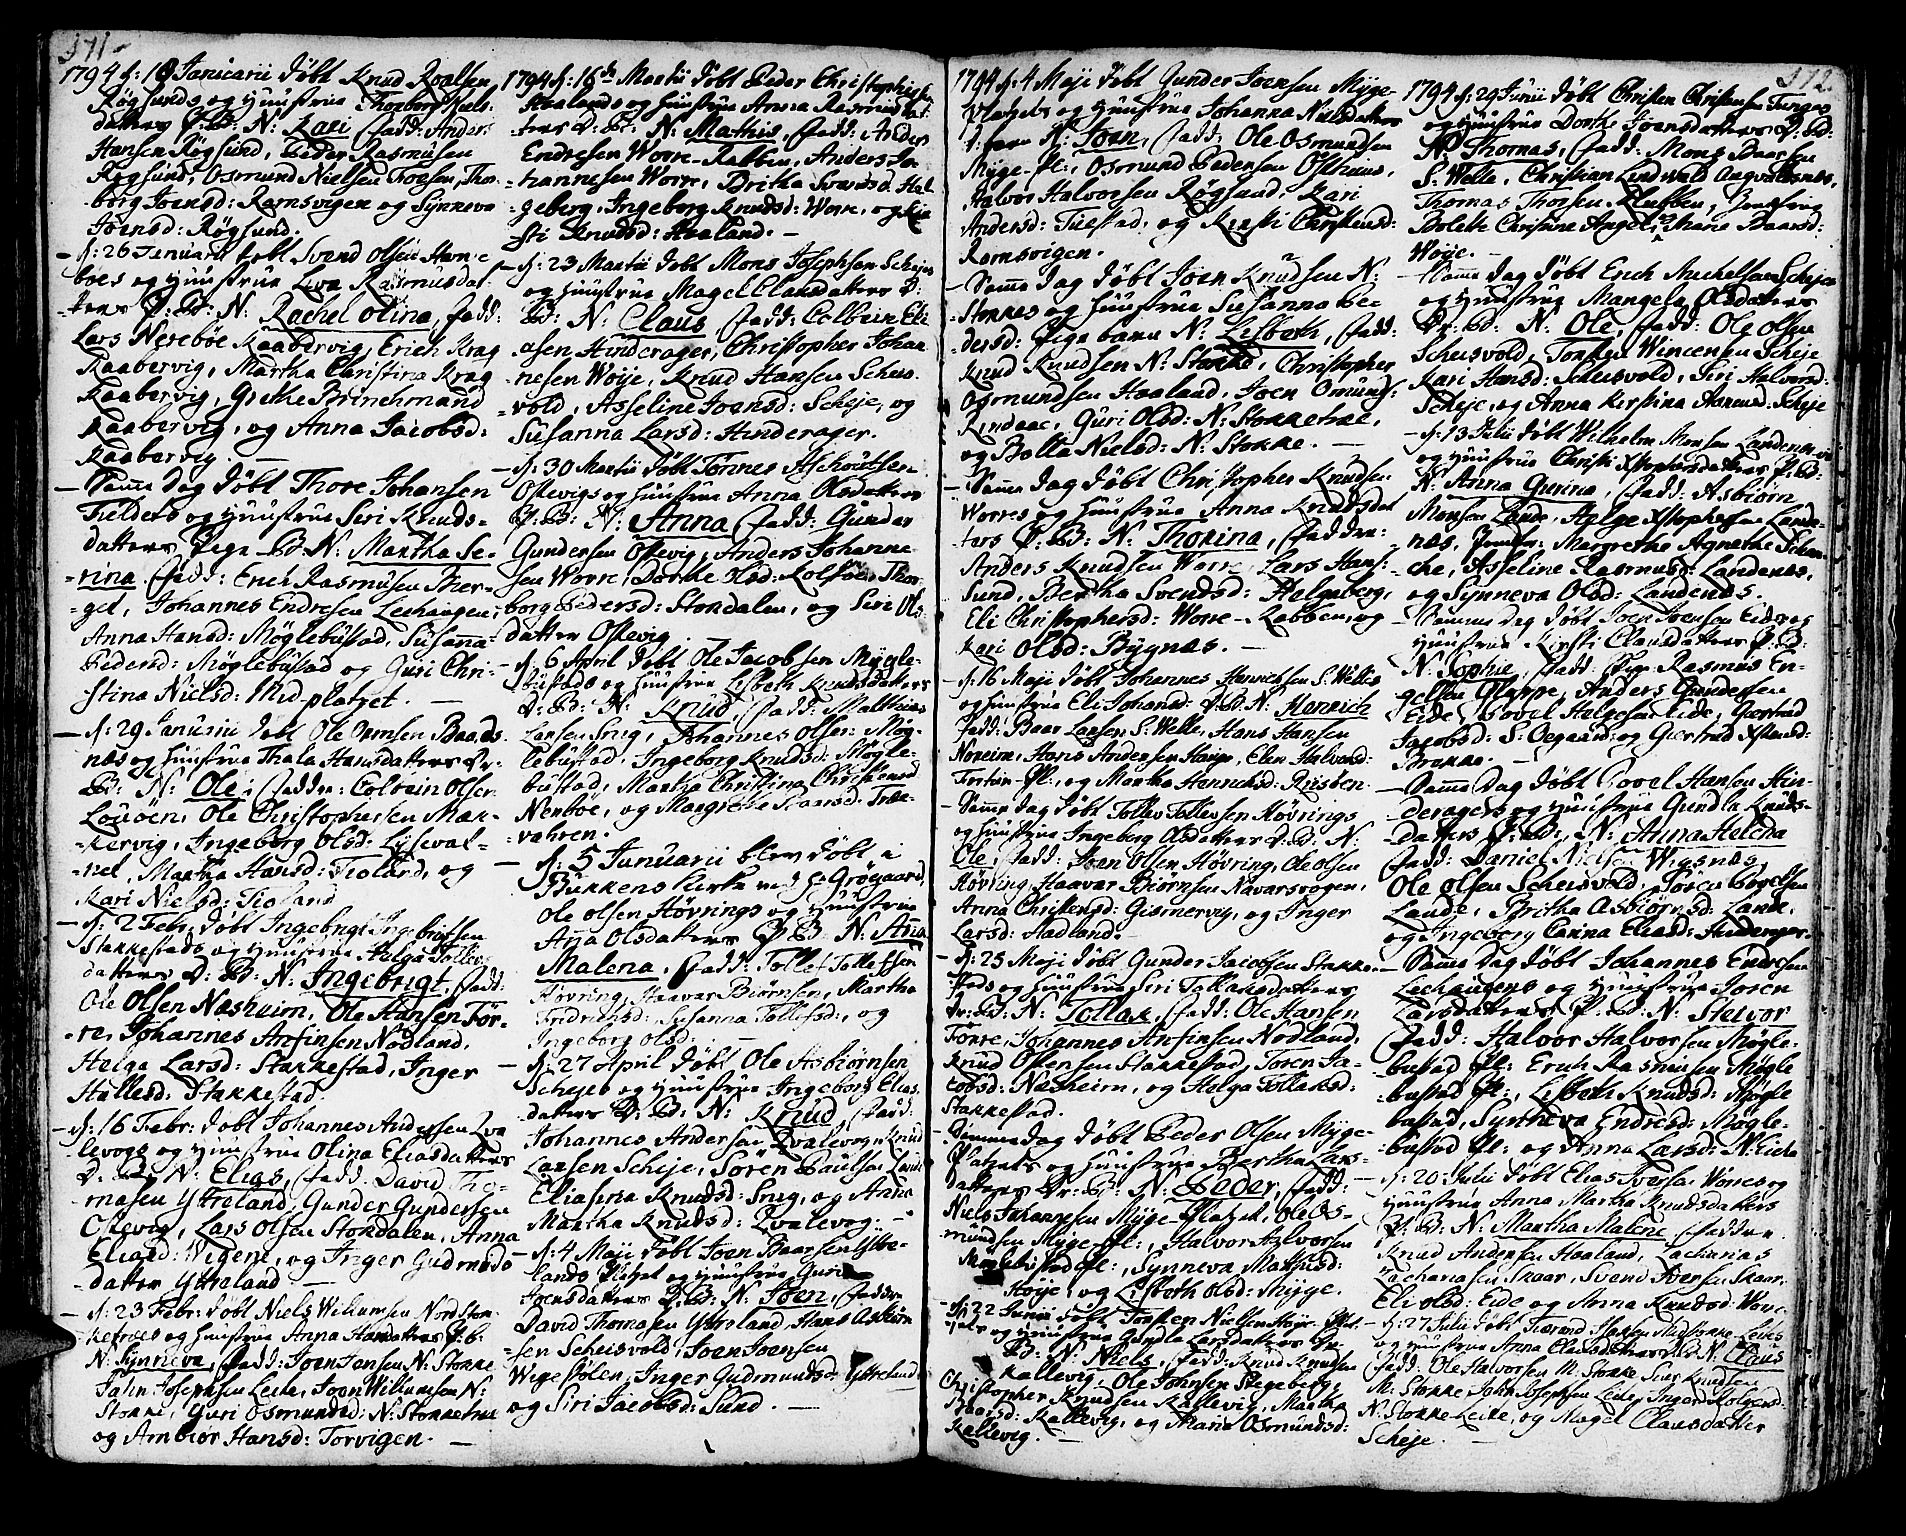 371
1794 d: 18 Januarii døbt Knud Roalsen
Røgsunds og Huustrue Thorborg Niels-
datters P: B: N: Kari, Fadd: Anders
Hansen Røgsund, Peder Rasmusen
Røgsund, Osmund Nielsen Troesen, Thor-
borg Joensd: Ramsvigen og Synneva
Joensd: Røgsund.
- d: 26 Januarii døbt Svend Olsen Havne-
boes og Huustrue Eva Rasmusdat-
ters P: B: N: Rachel Olina, Fadd:
Lars Nereböe Raabervig, Erich Krag
Raabervig, Martha Christina Krag
Raabervig, Grethe Brinchmand
Raabervig, og Anna Jacobsd:
Raabervig.
- Samme Dag døbt Thore Johansen
Fielders og Huustrue Siri Knuds-
datters Pige B: N: Martha Se-
rina, Fadd: Erich Rasmusen Bier-
get, Johannes Endresen Leehaugen,
Anna Hansd: Møglebustad, Susanna
Pedersd: Møglebustad og Guri Chri-
stina Nielsd: Mid-pladset.
- d: 29 Januarii døbt Ole Omsen Baads-
næs og Huustrue Thala Hansdatters Dr:
B: N: Ole, Faddr: Colbein Olsen
Loúöen, Ole Christophersen Mar-
kervig, Ingeborg Olsd: Lyseval-
net, Martha Hansd: Fioland, og
Kari Nielsd: Fioland
- d: 2 Febr: døbt Ingebrigt Ingebrigtsen
Stakkestads og Huustrue Helga Tollevs
datters D: B: N: Ingebrigt, Fadd:
Ole Olsen Nasheim, Ole Hansen Før-
re, Johannes Anfinsen Nodland,
Helga Larsd: Stakkestad, Inger
Hallesd: Stakkestad.
- d: 16 Febr: døbt Johannes Andersen Qva
levogs og Huustrue Olina Eliasdatters
D: B: N: Elias, Fadd: David Tho-
masen Yttreland, Gunder Gundersen
Ostevig, Lars Olsen Stokdalen, Anna
Eliasd: Vigene, og Inger Gudmunds
datter Yttreland
- d: 23 Febr: døbt Niels Willumsen Nordstok-
kefroes og Huustrue Anna Hansdatters P: B:
N: Synneva, Fadd: Joen Jensen N: Stokke
Jahn Josephsen Leite, Joen Willumsen N:
Stokke, Guri Osmundsd: N: Stokke
og Ambior Hansd: Torvigen.
1794 d: 16de Martii døbt Peder Christophersen
Haalands og Huustrue Anna Rasmusdat-
ters D: B: N: Mathis, Fadd: Anders
Endresen Worre-Rabben, Anders Jo-
hannesen Worre, Britha Svensd: Hal-
geberg, Ingeborg Knudsd: Worre, og Kir
sti Knudsd: Haaland.
- d: 23 Martii døbt Mons Josephsen Scheje
og Huustrue Magel Clausdatters D:
B: N: Claus, Fadd: Colbein Eli
asen Hinderager, Christopher Johan
nesen Woije, Knud Hansen Scheis-
vold, Asseline Joensd: Scheje, og
Susanna Larsd: Hinderager.
- d: 30 Martii døbt Tønnes
Ostevigs og Huustrue Anna Olsdatters
P: B: N: Anna, Fadd: Gunder
Gundersen Ostevig, Anders Johanne
sen Worre, Dorthe Olsd: Kolstöe, Thor-
borg Pedersd: Stokdalen, og Siri Ols-
datter Ostevig.
- d: 6 April døbt Ole Jacobsen Mygle-
bustads og Huustrue Lisbeth Knudsdatters
D: B: N: Knud, Fadd: Malthias
Larsen Snig, Johannes Olsen Møg-
lebustad, Ingeborg Knudsd: Møgle-
bustad, Martha Christina Christensd
Nerböe, og Margrethe Hansd: Træe-
vahren.
- d: 5 Januarii blev døbt i
Bukkens Kirke ved Hr Grögaard,
Ole Olsen Høvrings og Huustrue
Anna Olsdatters P: B: N: Ana
Malena, Fadd: Tollef Tollefsen
Høvring, Haavar Biörnsen, Martha
Fridrichsd: Susanna Tollefsd: og
Ingeborg Olsd:
- d: 27 April døbt Ole Asbiørnsen
Schejes og Huustrue Ingeborg Elias-
datters D: B: N: Knud, Fadd:
Johannes Andersen Qvalevog, Knud
Larsen Scheje, Søren Paulsen Lande
Eliasina Knudsd: Snig, og Anna
Martha Knudsd: Qvalevog.
- d: 4 Maji døbt Joen Baarsen Yttre-
lands Pladset og Huustrue Guri
Joensdatters D: B: N: Joen, Faddr
David Thomasen Yttreland, Hans Asbiörn
sen Scheisvold, Joen Joensen
Wigestölen, Inger Gudmundsd: Yttreland
og Siri Jacobsd: Sund.
372.
1794 d: 4 Maji døbt Gunder Joensen Myge-
Pladsets og Huustrue Johanna Nielsdatters
D: barn N: Joen, Fadd: Ole Osmundsen
Myge-Pl:, Osmund Pedersen Osthuus,
Halvor Halvorsen Røgsund, Kari
Andersd: Tuestad, og Kirsti Christensd:
Ramsvigen.
- Samme Dag døbt Joen Knudsen N:
Stokkes og Huustrue Susanna Pe-
dersd: Pige barn N: Lisbeth, Fadd:
Knud Knudsen N: Stokke, Christopher
Osmundsen Haaland, Joen Omunds:
Rindaae, Guri Olsd: N: Stokkehae,
og Bolla Nielsd: N: Stokke.
- Samme Dag døbt Christopher Knudsen
Worres og Huustrue Anna Knudsdat
ters P: B: N: Thorina, Faddre:
Anders Knudsen Worre, Lars Hans:
Sund, Bertha Svensd: Halgeberg,
Eli Christophersd: Worre-Rabben, og
Kari Olsd: Bygnæs.
- d: 16 Maji døbt Johannes Henrichsen S. Welles
og Huustrue Eli Johansd: D: B: N: Henrich
Fadd: Baar Larsen S: Welle, Hans Hansen
Noreim, Hans Andersen Hauge, Elen Halvorsd:
Tortun-Pl:, og Martha Henrichsd: Risøen
- Samme Dag døbt Tollav Tollevsen Høvrings
og Huustrue Ingeborg Olsdatters D: B: N:
Ole, Fadd: Joen Olsen Høvring, Ole Olsen
Høvring, Haavar Biørnsen Navarsvogen,
Anna Christensd: Gismervig, og Inger
Larsd: Hadland.
- d: 25 Maji døbt Gunder Jacobsen Stakke-
stads og Huustrue Siri Tollaksdatters
Dr: B: N: Tollak, Fadd: Ole Hansen
Førre, Johannes Anfinsen Nodland,
Knud Ostensen Stakkestad, Toren Ja-
cobsd: Nasheim, og Helga Tollaksd:
Stakkestad.
- Samme Dag døbt Peder Olsen Myge-
Pladsets og Huustrue Bertha Lars-
datters Dr: B: N: Peder, Fadd:
Niels Johannesen Myge-Pladset, Ole Os-
mundsen Myge-Pl:, Halvor Halvorsen
Møglebustad Pl:, Synneva Mathisd:
Høije, og Lisbeth Olsd: Myge.
- d: 22 Junii døbt Torsten Nielsen Høije-Pla-
dsets og Huustrue Gundla Larsdatters Dr
B: N: Niels, Fadd: Knud Knudsen
Kallevig, Ole Johnsen Stegeberg,
Christopher Knudsen Kallevig, Martha
Baarsd: Kallevig, og Maria Osmundsd:
Kallevig.
1794 d: 29 Junii døbt Christen Christensen Tunges
og Huustrue Dorthe Joensdatters D: B:
N: Thomas, Fadd: Mons Baarsen
S: Welle, Christian Lindwald Augvaldsnes,
Thomas Thorsen Klubben, Jomfrue
Bolette Christine Angel, Maria Baarsd:
Woije.
- Samme Dag døbt Erich Michelsen Scheje
og Huustrue Mangela Olsdatters
Dr: B: N: Ole, Fadd: Ole Olsen
Scheisvold, Torsten Wincensen Scheje
Kari Hansd: Scheisvold, Siri Halvorsd:
Scheje, og Anna Kirstina Aamund: Scheje
- d: 13 Julii døbt Wilhelm Monsen Landenæs
og Huustrue Christi Xstophersdatters P: B:
N: Anna Gurina, Fadd: Asbiørn
Monsen Lande, Helge Xstophersen Lande-
næs, Jomfr: Margrethe Agnethe Schan-
che, Asseline Rasmusd: Landenæs,
og Synneva Olsd: Landenæs.
- Samme Dag døbt Joen Joensen Eides og
Huustrue Kirsti Clausdatters P: B:
N: Sophie, Fadd: Sr Rasmus En-
gelsen Glarre, Anders Gundersen
Eide, Povel Helgesen Eide, Giertrud
Jacobsd: S. Aagaard, og Giertrud Xstensd:
Brakke.
- Samme Dag døbt Povel Hansen Hin-
deragers og Huustrue Gundla Knuds-
datters P: B: N: Anna Helena
Fadd: Daniel Nielsen Wigsnæs,
Ole Olsen Scheisvold, Søren Povelsen
Lande, Britha Asbiørnsd: Lande,
og Ingeborg Canna Eliasd: Hinderager.
- Samme Dag døbt Johannes Endresen
Leehaugens og Huustrue Joren
Larsdatters P: B: N: Steivor
Fadd: Halvor Halvorsen Møgle-
bustad Pl: Erich Rasmusen Møgle
bustad Pl:, Lisbeth Knudsd: Møgle
bustad, Syntheva Endresd: Møgle-
bustad Pl: og Anna Larsd: N: Eide
- d: 20 Julii døbt Elias Iversen Worres og
Huustrue Anna Martha Knudsdatters
P: B: N: Martha Malene, Faddre
Knud Andersen Haaland, Zacharias
Zachariasen Skaar, Svend Iversen Skaar,
Eli Olsd: Eide og Anna Knudsd: Worre
- d: 27 Julii døbt Midstokke Leites
og Huustrue Anna N: Claus
Fadd: Ole Halvorsen M: Stokke Siver Knudsen
M: Stokke John Josephsen Leite, Inger Holgersd:
N: Stokke Leite, og Magel Clausdatter
Scheje.